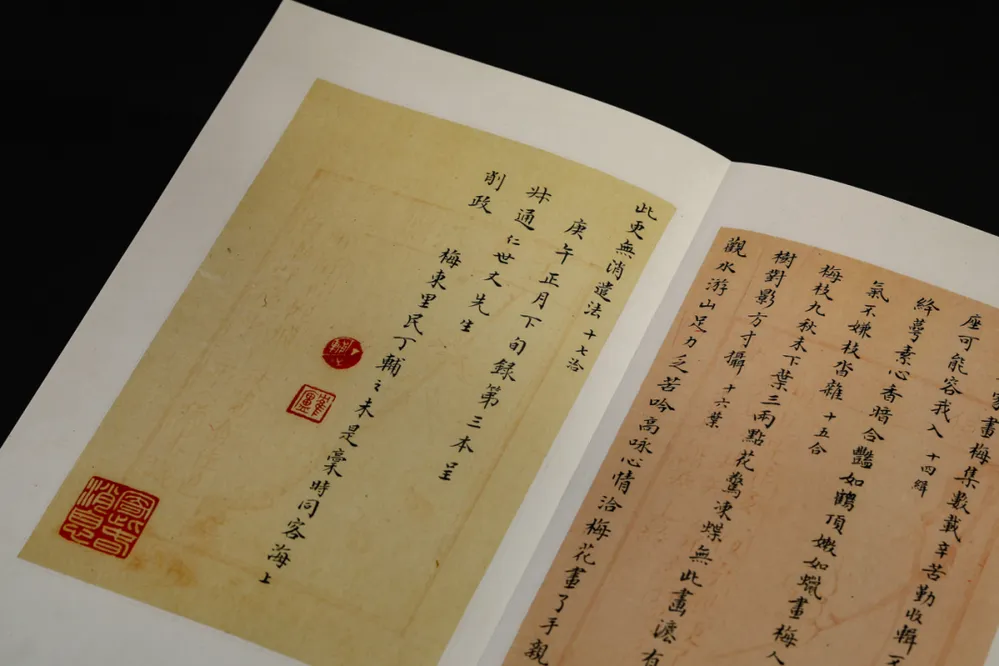 畫梅集數載辛苦勤收輯不
座可能容我入 十四緝
絳萼素心香暗合豔如鶴頂嫩如蠟畫梅人
氣不嫌枝雜 十五合
梅枝九秋未下葉三兩點花驚凍蝶無此畫濃有
樹對影方寸攝 十六葉
觀水游山足力乏苦吟高咏心情洽梅花畫了手親
此更無消遣法 十七洽
庚午正月下旬錄第三本呈
尗通仁世丈先生
削政
梅東里民丁輔之未是稾時同客海上
鶴廬